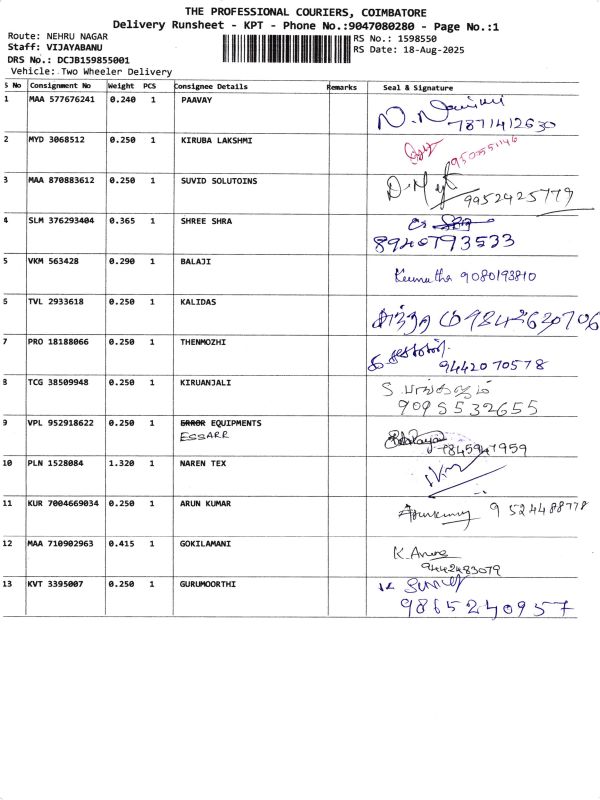 THE PROFESSIONAL COURIERS, COIMBATORE
Delivery Runsheet - KPT - Phone No.:9047080280 - Page No.:1
Route: NEHRU NAGAR RS No.: 1598550
Staff: VIJAYABANU RS Date: 18-Aug-2025
DRS No.: DCJB159855001
Vehicle: Two Wheeler Delivery
S No Consignment No Weight PCS Consignee Details Remarks Seal & Signature
1 MAA 577676241 0.240 1 PAAVAY
7871412630
2 MYD 3068512 0.250 1 KIRUBA LAKSHMI
3 MAA 870883612 0.250 1 SUVID SOLUTOINS
9952425779
4 SLM 376293404 0.365 1 SHREE SHRA
8940793533
5 VKM 563428 0.290 1 BALAJI
9080193810
6 TVL 2933618 0.250 1 KALIDAS
7 PRO 18188066 0.250 1 THENMOZHI
9442070578
8 TCG 38509948 0.250 1 KIRUANJALI
9095532655
9 VPL 952918622 0.250 1 ERROR EQUIPMENTS
ESSARR
7845947959
10 PLN 1528084 1.320 1 NAREN TEX
11 KUR 7004669034 0.250 1 ARUN KUMAR
9524488778
12 MAA 710902963 0.415 1 GOKILAMANI
9442483079
13 KVT 3395007 0.250 1 GURUMOORTHI
9865240957